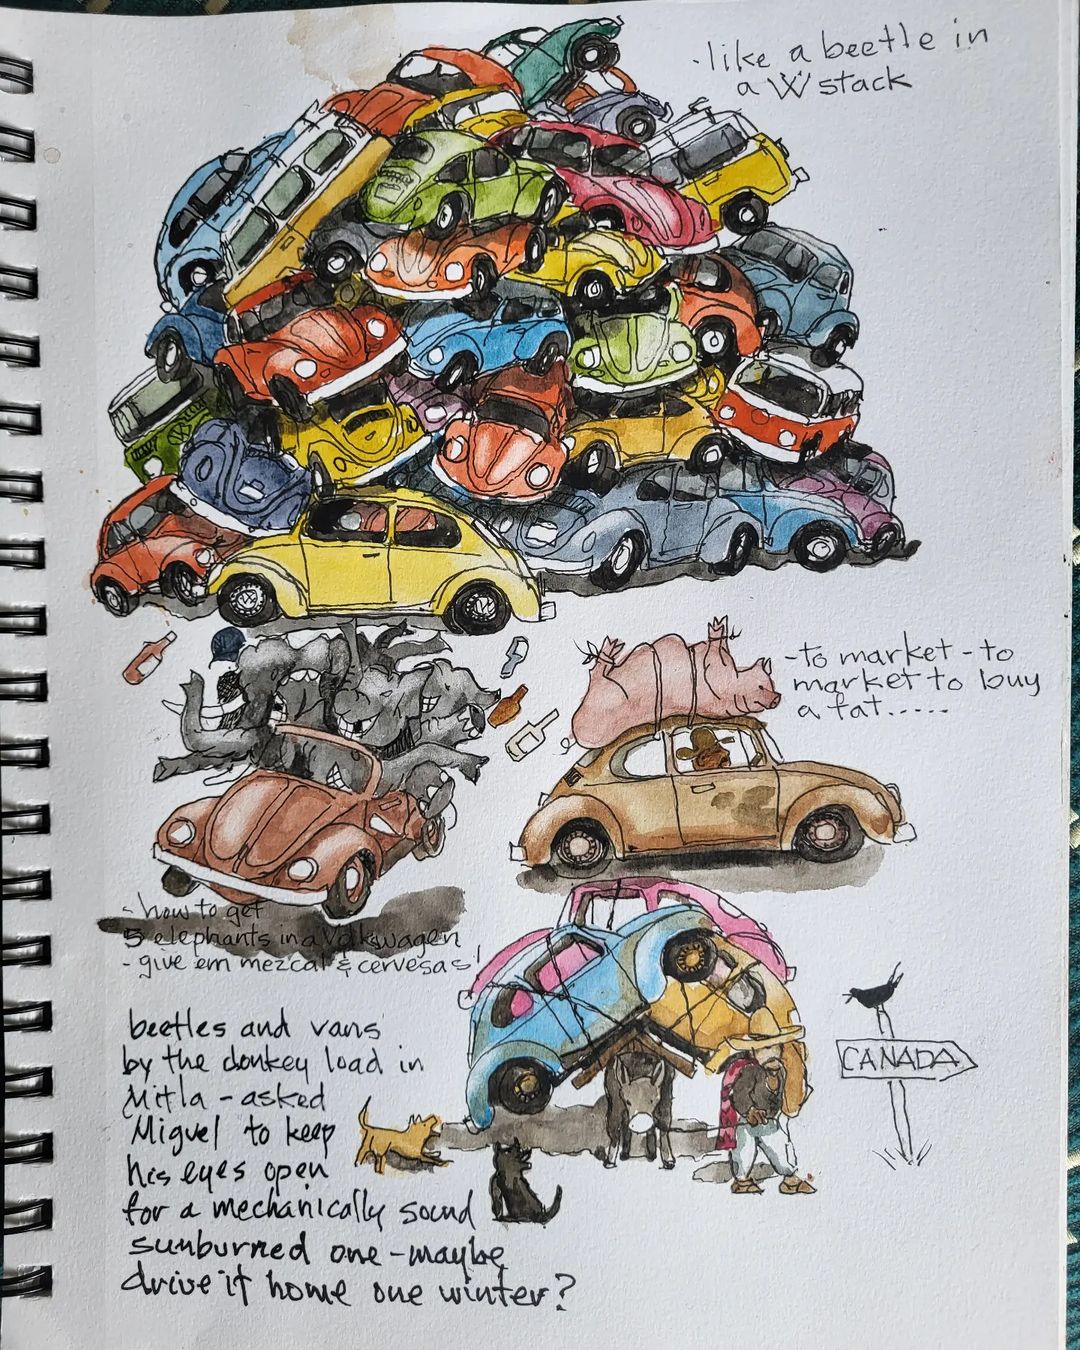 -like a beetle in
a W stack
-to market - to
market to buy
a fat.....
- how to get
5 elephants in a Volkswagen
- give em mezcal & cervesas!
CANADA
beetles and vans
by the donkey load in
Mitla - asked
Miguel to keep
his eyes open
for a mechanically sound
sunburned one - maybe
drive it home one winter?